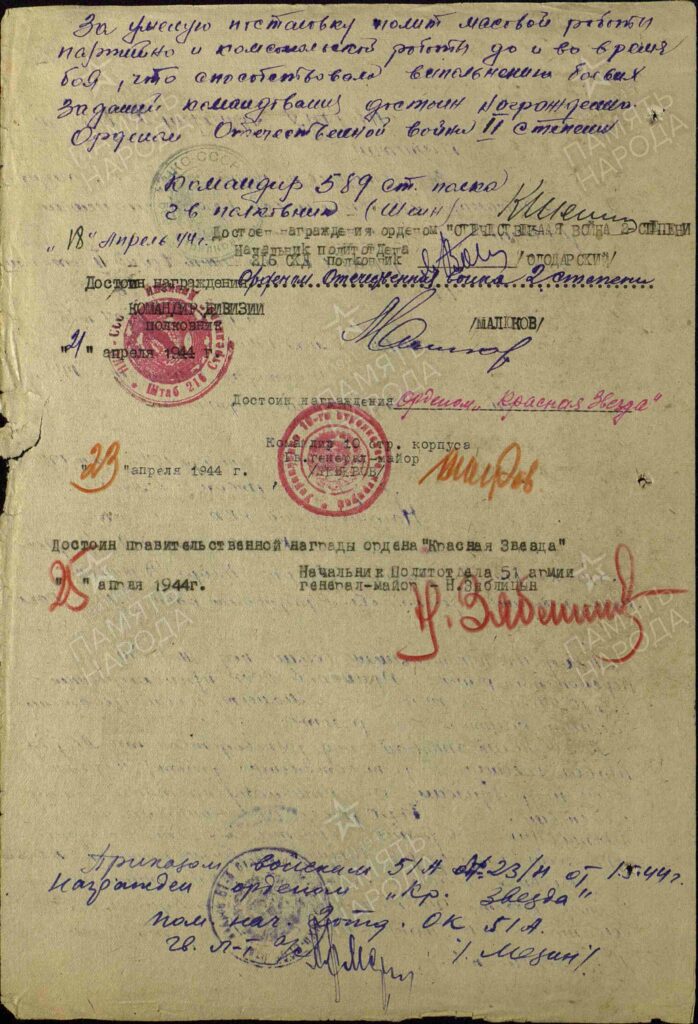 За умелую постановку полит масовой работы
партийно и комсомольской работы до и во время
боя, что способствовала выполнению боевых
заданий командования достоин награждения
Орденом Отечественной война II степени
Командир 589 ст. полка
гв полковник (Шеин)
"18" Апрель 44г.
Достоен награждения орденом "ОТЕЧЕСТВЕННАЯ ВОЙНА 2 СТЕПЕНИ
Начальник политотдела
216 СКД полковник /ОЛОДАРСКИЙ/
Достоин награждения Орденом Отечественная война 2 степени
КОМАНДИР ДИВИЗИИ
полковник /МАЛЮКОВ/
"21" апреля 1944 г.
Штаб 216
Достоин награждения орденом "Красная Звезда"
Командир 10 стр. корпуса
Гв. генерал-майор
"23" апреля 1944 г. /НЕВЕРОВ/
Достоин правительственной награды ордена "Красная Звезда"
Начальник Политотдела 51 армии
"25" апреля 1944г. генерал-майор Н. Зяблицын
Н. Зяблицын
Приказом войскам 51А № 23/н от 1.5.44г.
Награжден орденом "Кр. Звезда"
пом. нач. 3 отд. ОК 51А.
гв. л-т а/с / Мезин /
ПАМЯТЬ
НАРОДА